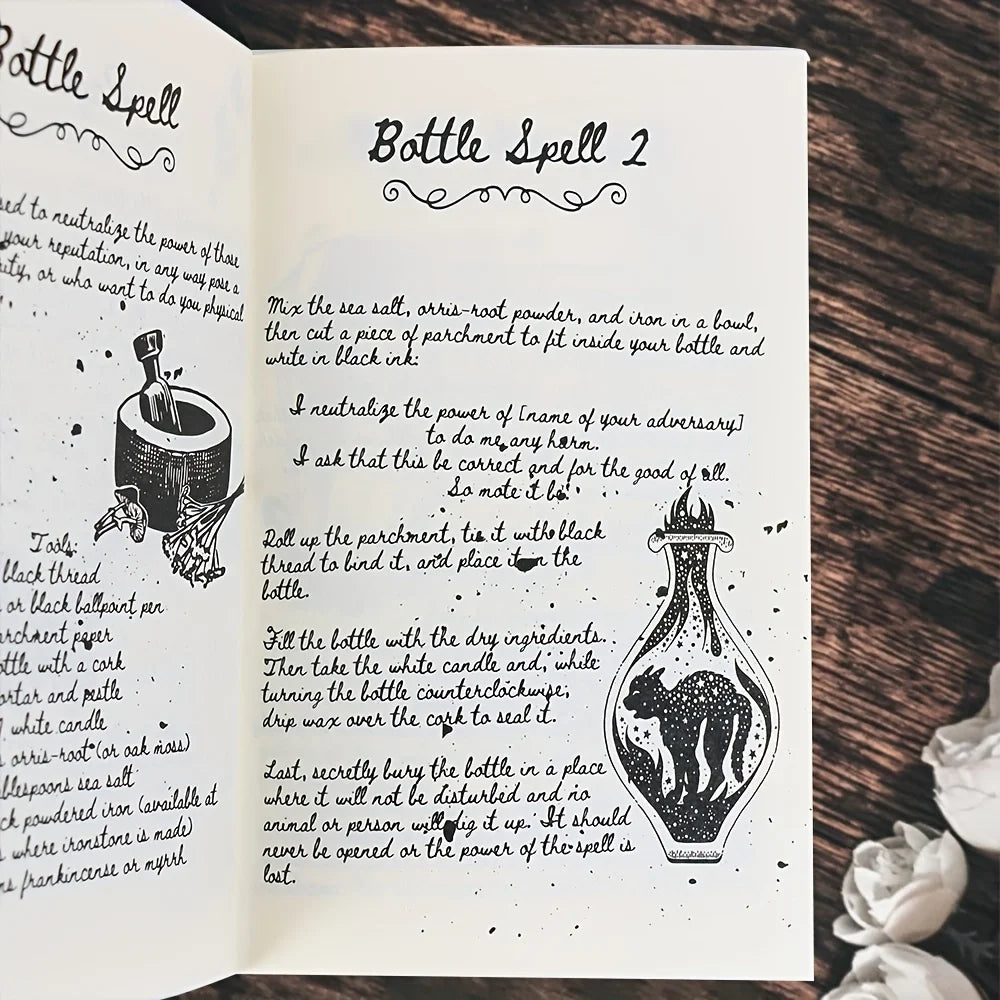 Bottle Spell
sed to neutralize the power of those
your reputation, in any way pose a
or who want to do you physical
Tools:
black thread
or black ballpoint pen
archment paper
ottle with a cork
ortar and pestle
white candle
orris-root (or oak moss)
blespoons sea salt
ck powdered iron (available at
where ironstone is made)
frankincense or myrrh
Bottle Spell 2
Mix the sea salt, orris-root powder, and iron in a bowl,
then cut a piece of parchment to fit inside your bottle and
write in black ink:
I neutralize the power of [name of your adversary]
to do me any harm.
I ask that this be correct and for the good of all.
So mote it be!
Roll up the parchment, tie it with black
thread to bind it, and place it in the
bottle.
Fill the bottle with the dry ingredients.
Then take the white candle and, while
turning the bottle counterclockwise,
drip wax over the cork to seal it.
Last, secretly bury the bottle in a place
where it will not be disturbed and no
animal or person will dig it up. It should
never be opened or the power of the spell is
lost.